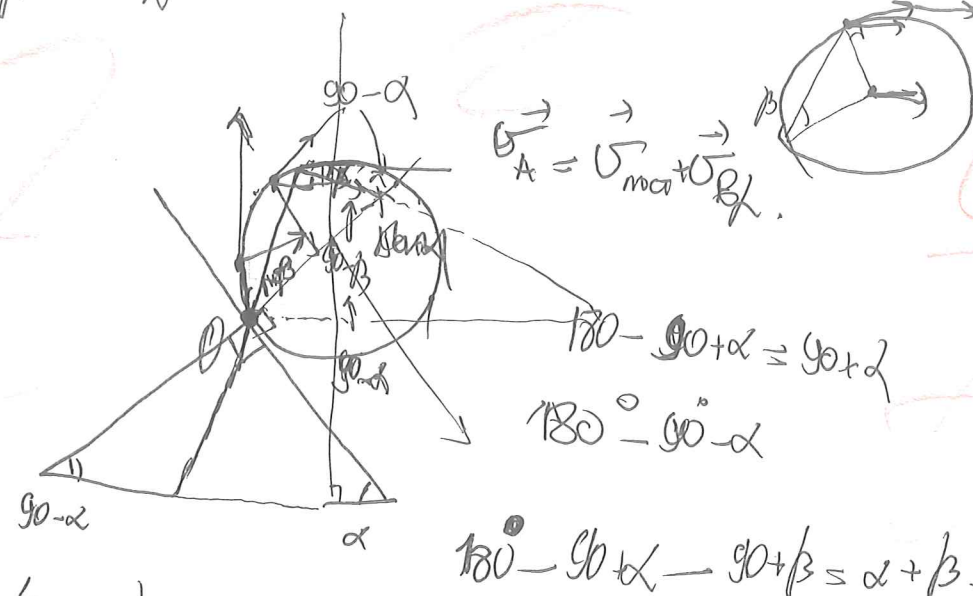 90-α
β
v⃗_A = v⃗_пост + v⃗_вр.
90-β
90-α
180 - 90 + α = 90 + α
180° - 90° - α
90-α
α
180° - 90 + α - 90 + β = α + β.